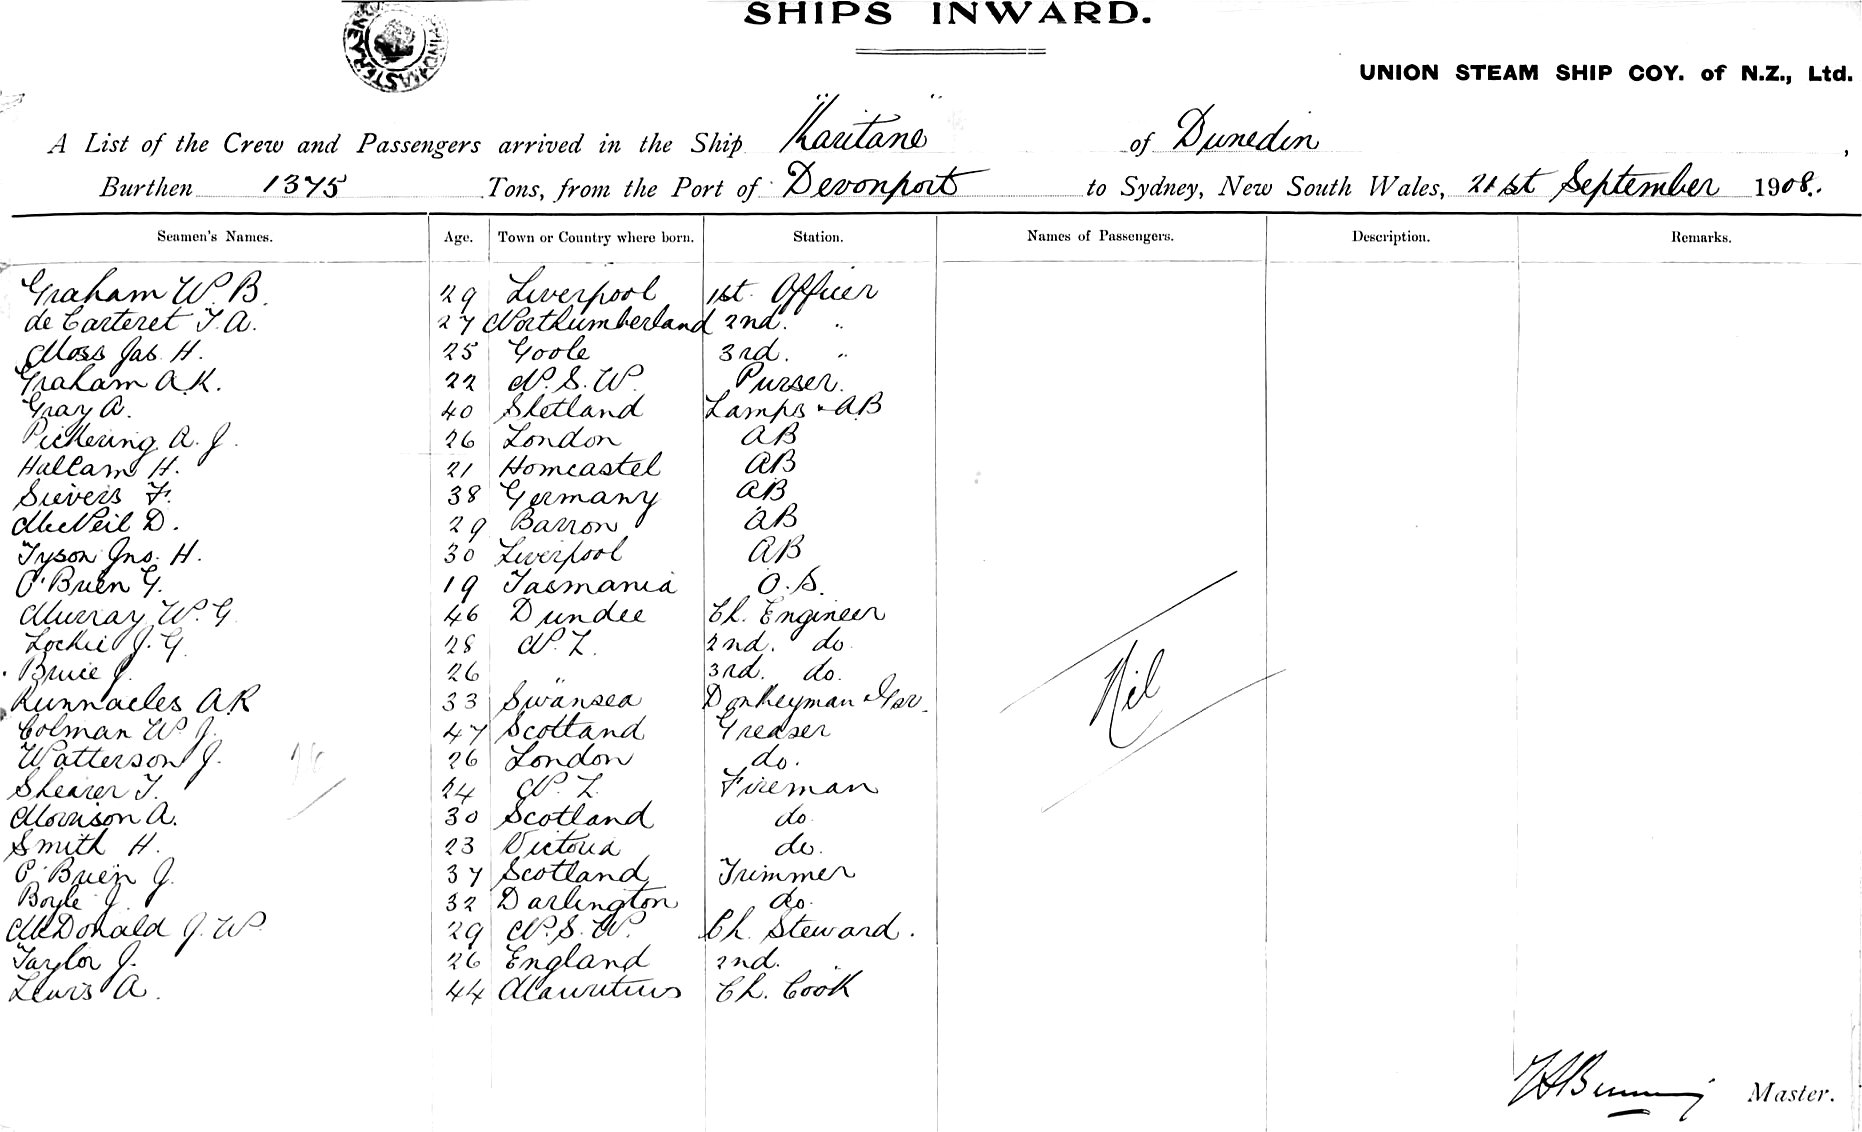 SHIPS INWARD.
UNION STEAM SHIP COY. of N.Z., Ltd.
A List of the Crew and Passengers arrived in the Ship "Karitane" of Dunedin,
Burthen 1375 Tons, from the Port of Devonport to Sydney, New South Wales, 21st September 1908.
Seamen's Names. Age. Town or Country where born. Station. Names of Passengers. Description. Remarks.
Graham W. B. 29 Liverpool 1st. Officer
de Carteret T. A. 27 Northumberland 2nd. "
Moss Jas. H. 25 Goole 3rd. "
Graham A. K. 22 N. S. W. Purser.
Gray A. 40 Shetland Lamps & AB
Pickering A. J. 26 London AB
Hallam H. 21 Horncastel AB
Sievers F. 38 Germany AB
McNeil D. 29 Barron AB
Tyson Jno. H. 30 Liverpool AB
O'Brien G. 19 Tasmania O. S.
Murray W. G. 46 Dundee Ch. Engineer
Lockie J. G. 28 N. Z. 2nd. do.
Bruce J. 26 " 3rd. do.
Runnacles A R 33 Swansea Donkeyman & Gsr.
Colman W J. 47 Scotland Greaser
Watterson J. 26 London do.
Shearer T. 24 N. Z. Fireman
Morrison A. 30 Scotland do.
Smith H. 23 Victoria do.
O'Brien J. 37 Scotland Trimmer
Boyle J. 32 Darlington do.
McDonald J. W. 29 N. S. W. Ch. Steward.
Taylor J. 26 England 2nd. "
Lewis A. 44 Mauritius Ch. Cook
Nil
Master.